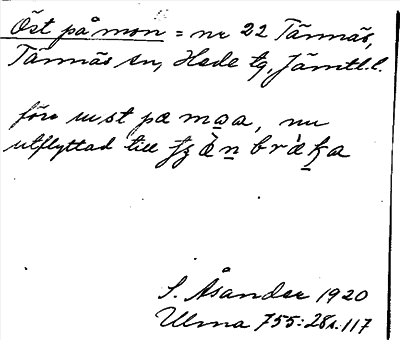 Öst på mon = nr 22 Tännäs,
Tännäs sn, Hede tg, Jämtl.l.
förr
pæ mo̲a, nu
utflyttad till
S. Åsander 1920
Ulma 755:28 s. 117